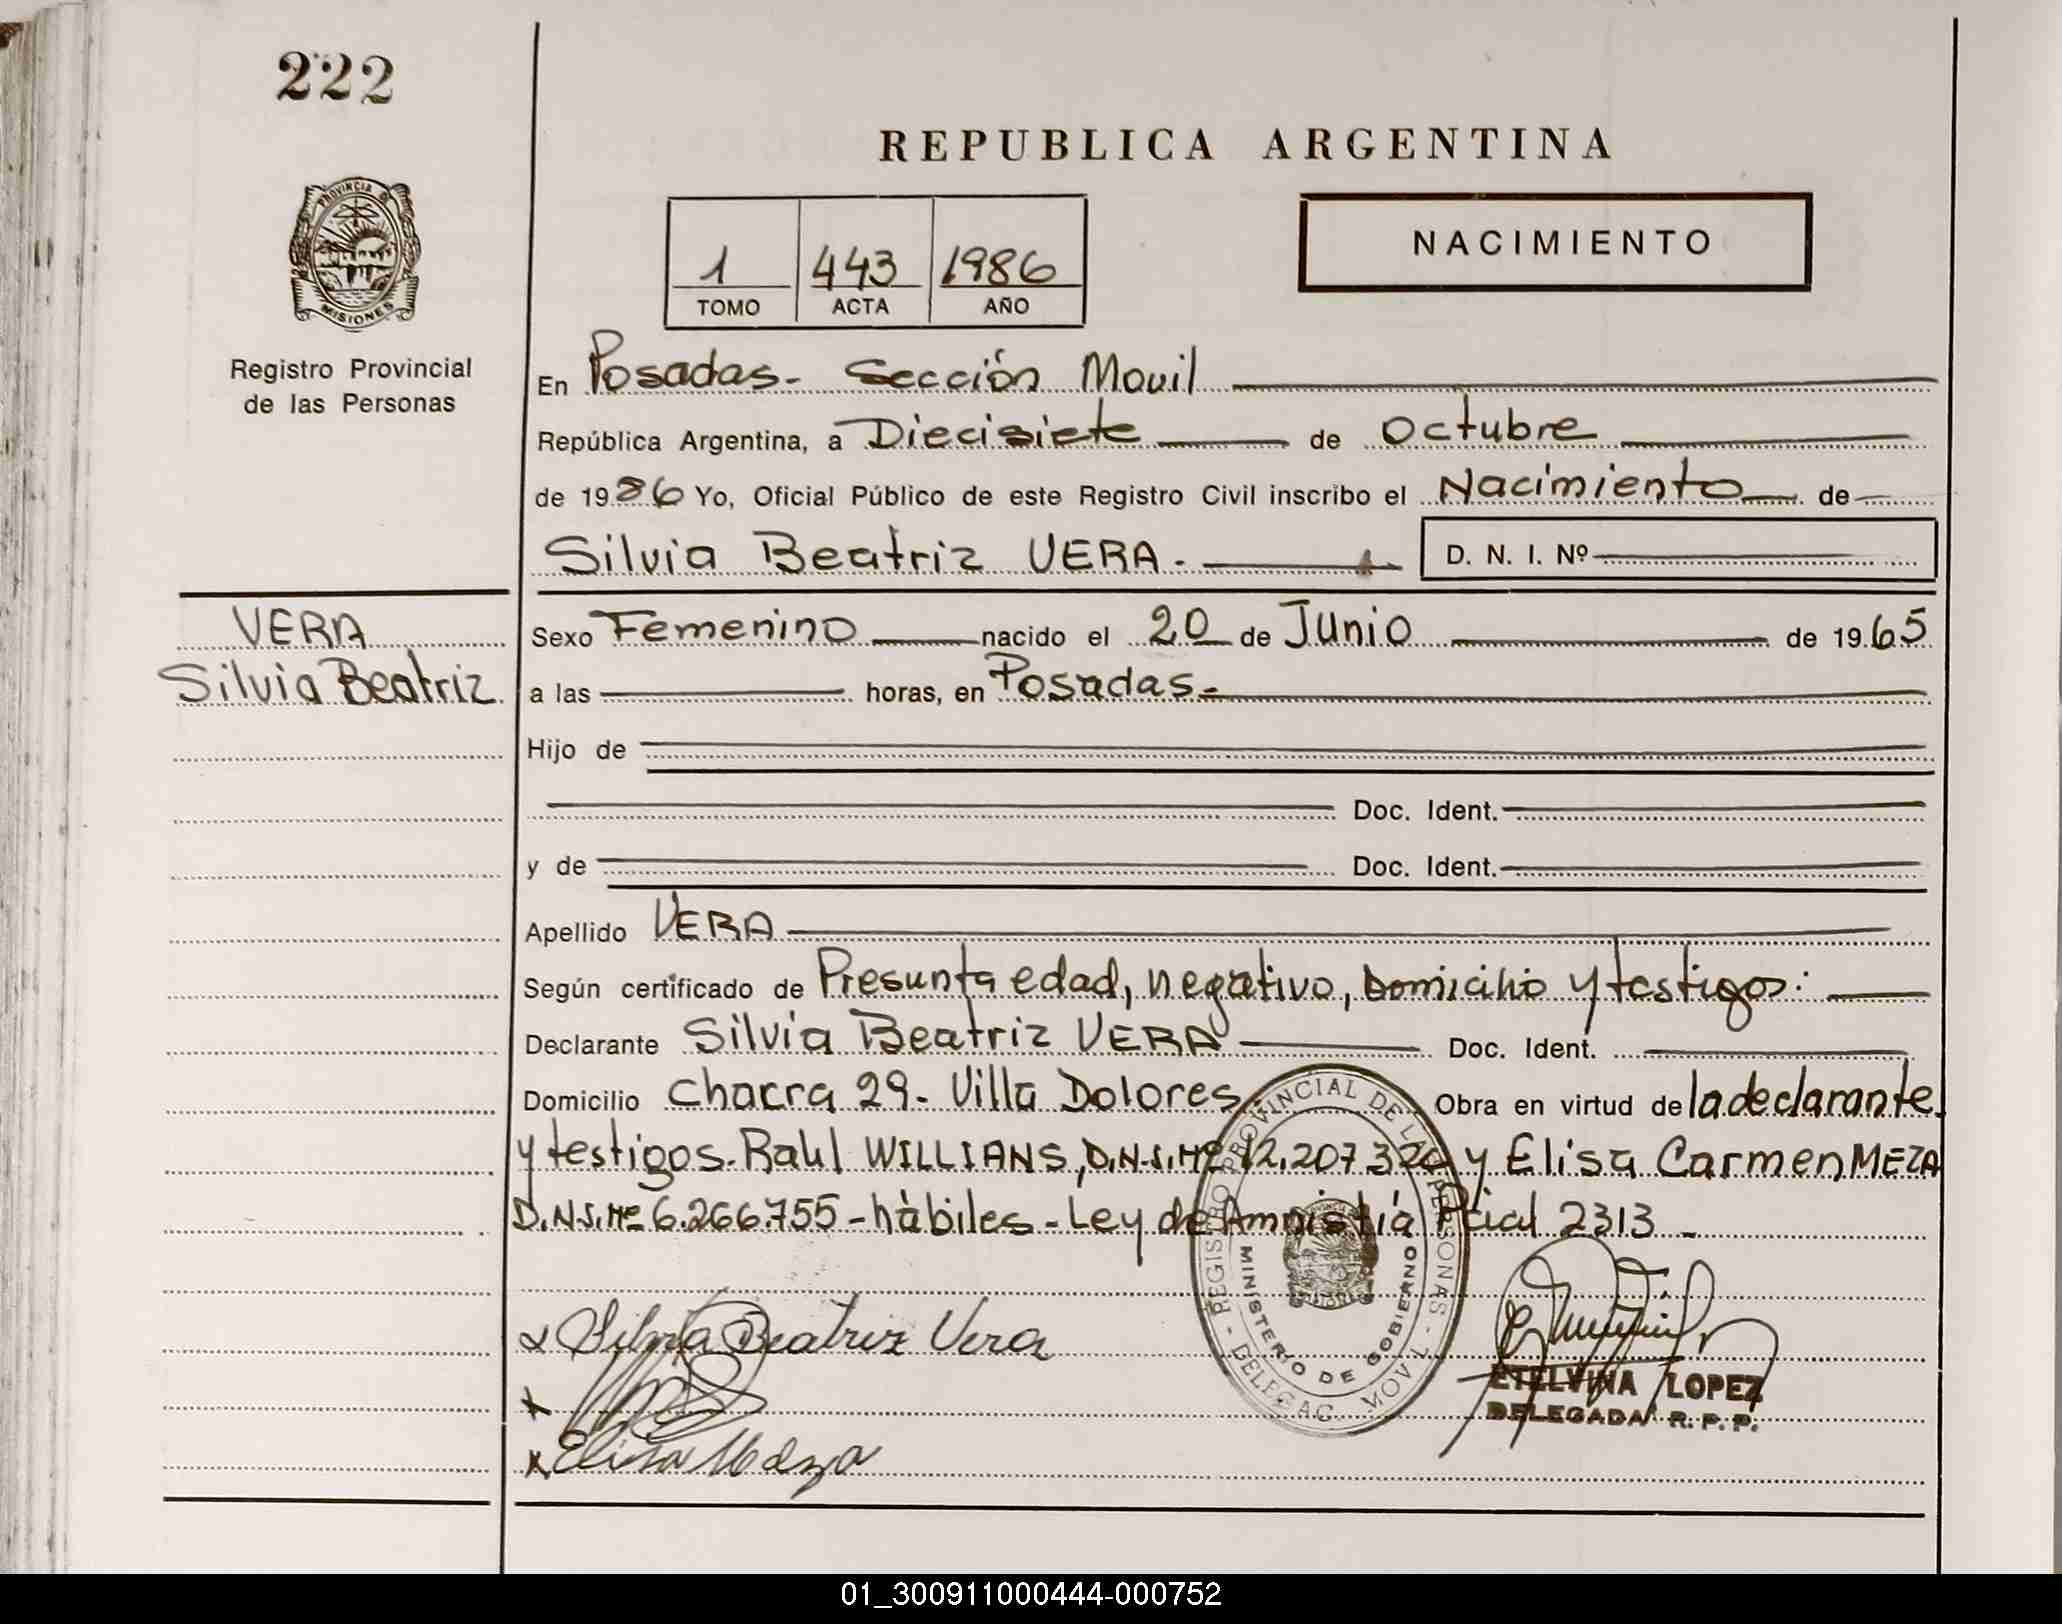 222
REPUBLICA ARGENTINA
PROVINCIA DE MISIONES
1 443 1986
TOMO ACTA AÑO
NACIMIENTO
Registro Provincial
de las Personas
En Posadas- Sección Movil
República Argentina, a Diecisiete de Octubre
de 1986 Yo, Oficial Público de este Registro Civil inscribo el Nacimiento de
Silvia Beatriz VERA.- D. N. I. Nº
VERA
Silvia Beatriz
Sexo Femenino nacido el 20 de Junio de 1965
a las horas, en Posadas-
Hijo de
Doc. Ident.
y de Doc. Ident.
Apellido VERA
Según certificado de Presunta edad, negativo, Domicilio y testigos:
Declarante Silvia Beatriz VERA Doc. Ident.
Domicilio Chacra 29- Villa Dolores. Obra en virtud de la declarante
y testigos- Raul WILLIANS, D.N.I. Nº 12.207.320 y Elisa Carmen MEZA
D.N.I. Nº 6.266.755 - hàbiles - Ley de Amnistía Pcial 2313 -
REGISTRO PROVINCIAL DE LAS PERSONAS - DELEGAC. MOVIL -
MINISTERIO DE GOBIERNO
Silvia Beatriz Vera
Elisa Meza
ETELVINA LOPEZ
DELEGADA R. P. P.
01_300911000444-000752